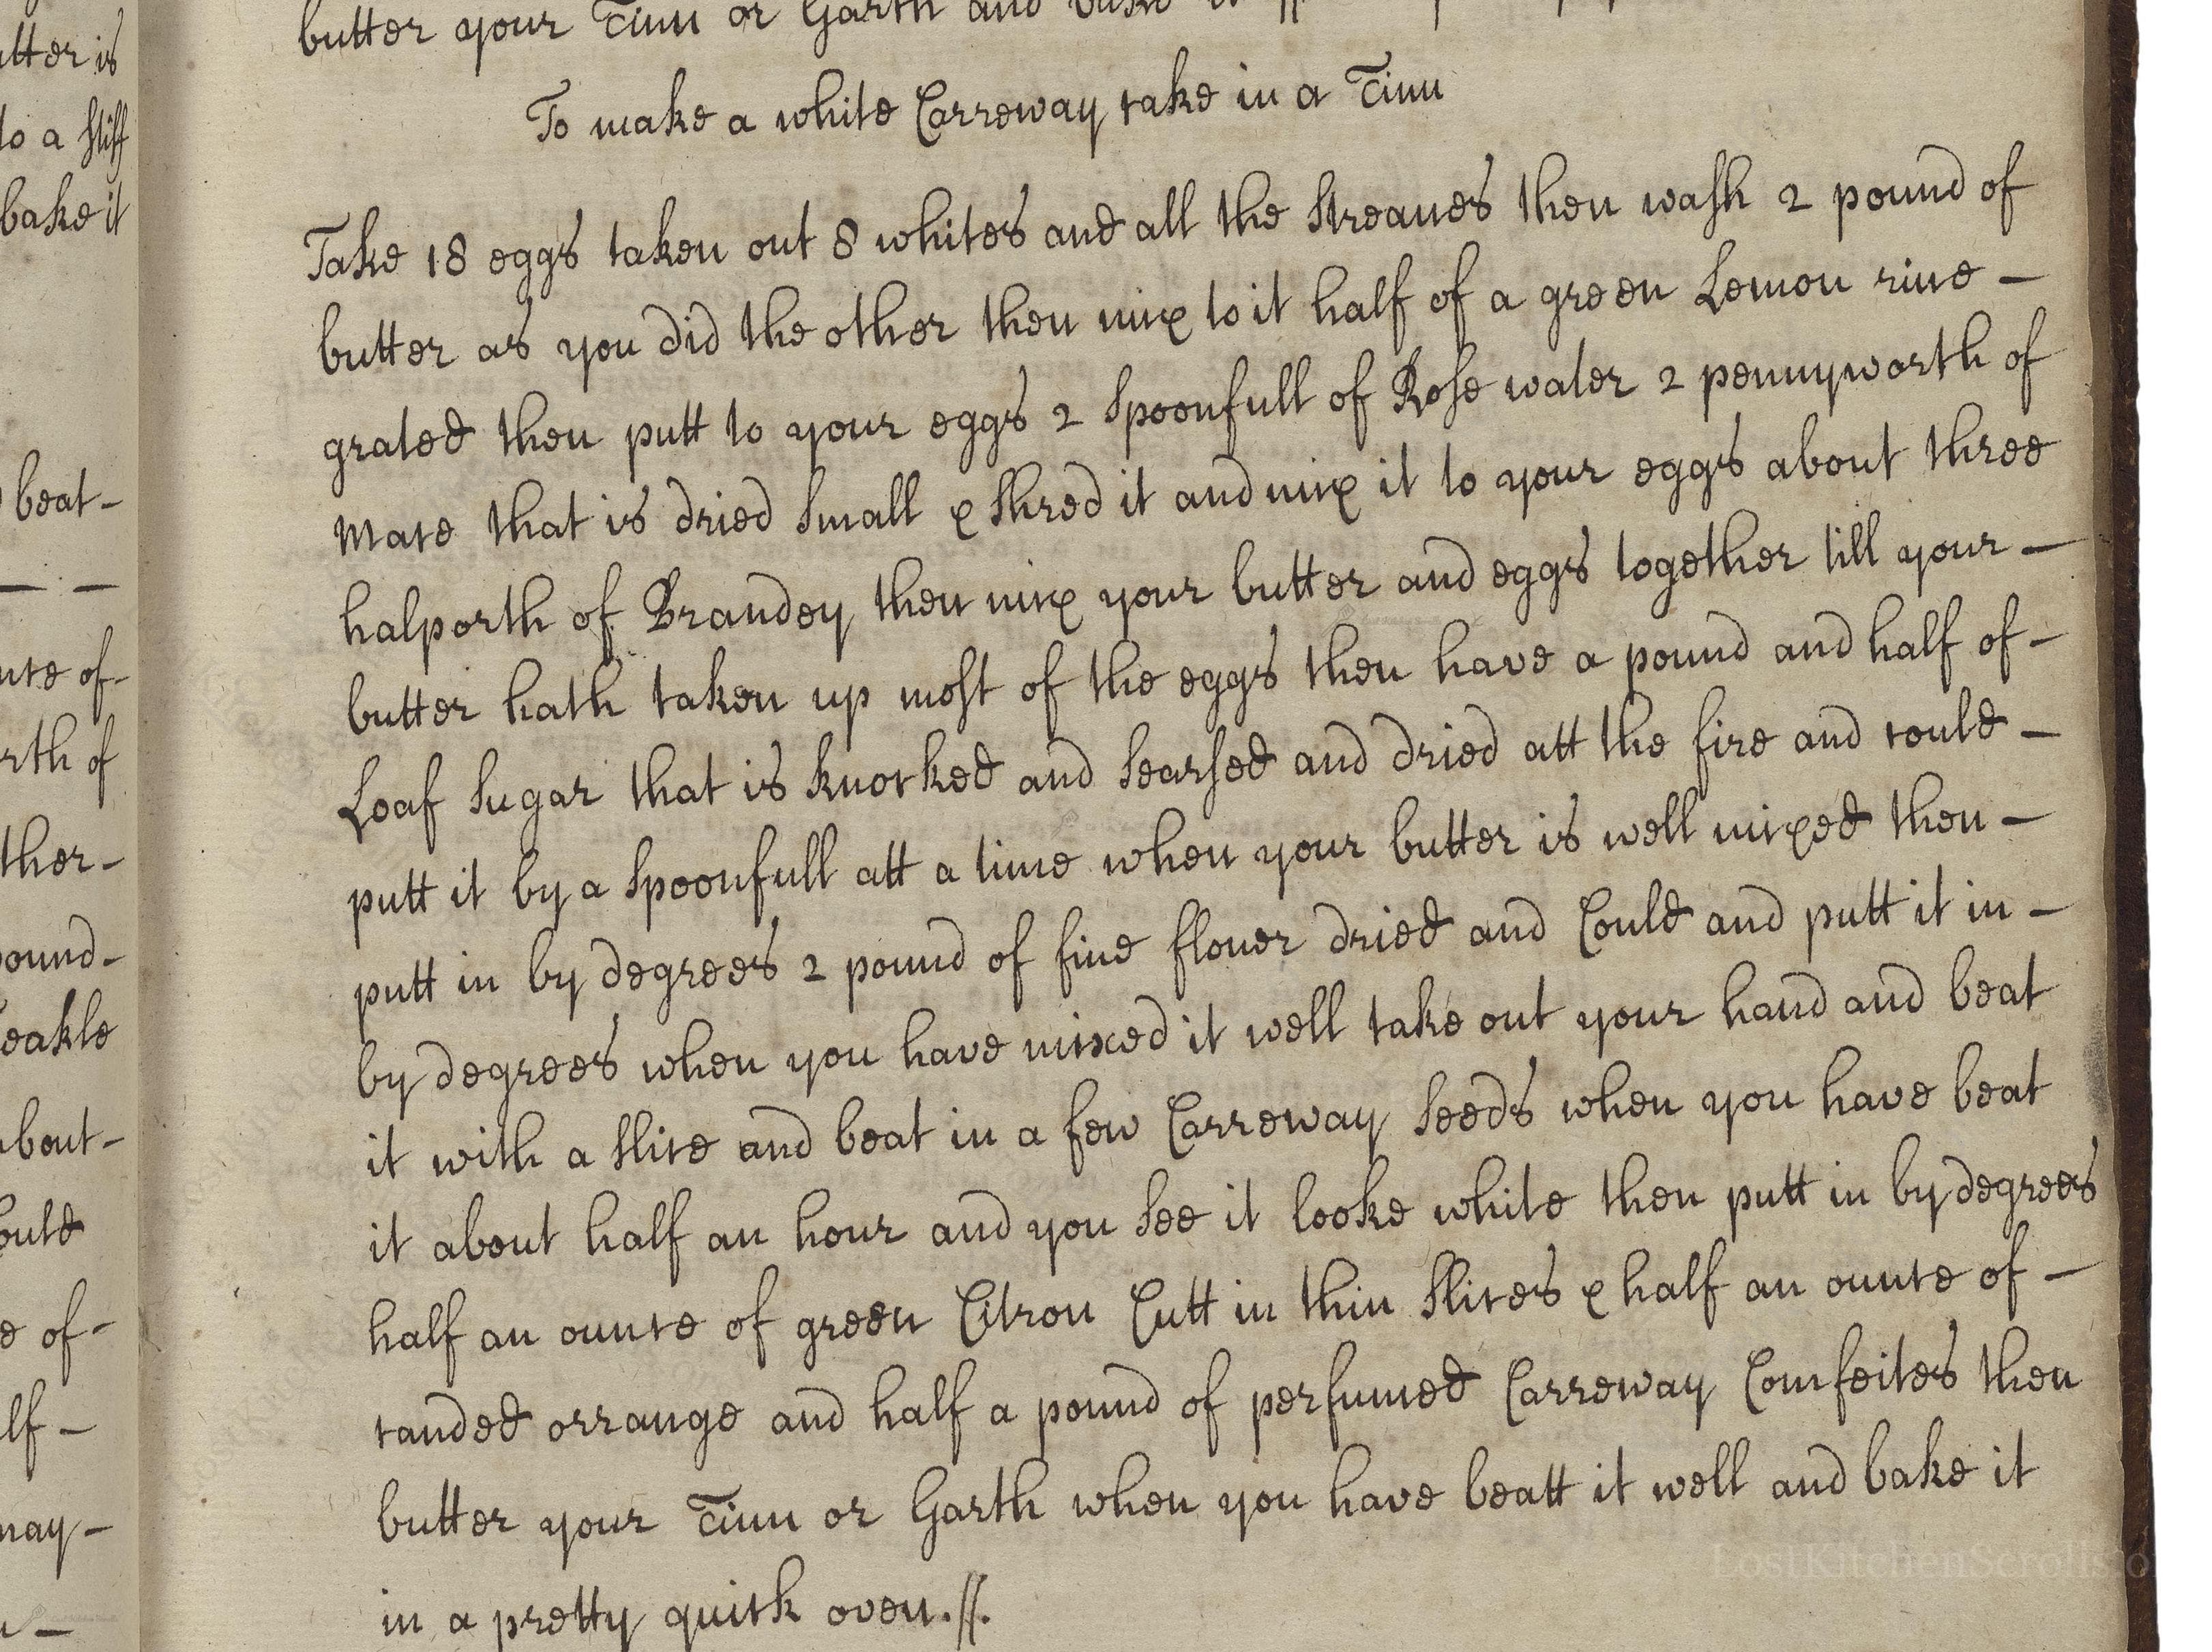 utter is
to a stiff
bake it
beat-
unce of-
rth of
ther-
pound-
about-
ould
e of-
alf-
may-
butter your Tinn or Garth and bake it
To make a white Carreway cake in a Tinn
Take 18 eggs taken out 8 whites and all the streanes then wash 2 pound of
butter as you did the other then mix to it half of a green Lemon rine -
grated then putt to your eggs 2 spoonfull of Rose water 2 pennyworth of
mace that is dried small & shred it and mix it to your eggs about three
halporth of Brandey then mix your butter and eggs together till your -
butter hath taken up most of the eggs then have a pound and half of -
Loaf sugar that is knocked and searsed and dried att the fire and could -
putt it by a spoonfull att a time when your butter is well mixed then -
putt in by degrees 2 pound of fine flouer dried and Could and putt it in -
by degrees when you have mixed it well take out your hand and beat
it with a slice and beat in a few Carreway seeds when you have beat
it about half an hour and you see it looke white then putt in by degrees
half an ounce of green Citron Cutt in thin slices & half an ounce of -
canded orrange and half a pound of perfumed Carreway Comfeites then
butter your Tinn or Garth when you have beatt it well and bake it
in a pretty quick oven.//.
LostKitchenScrolls